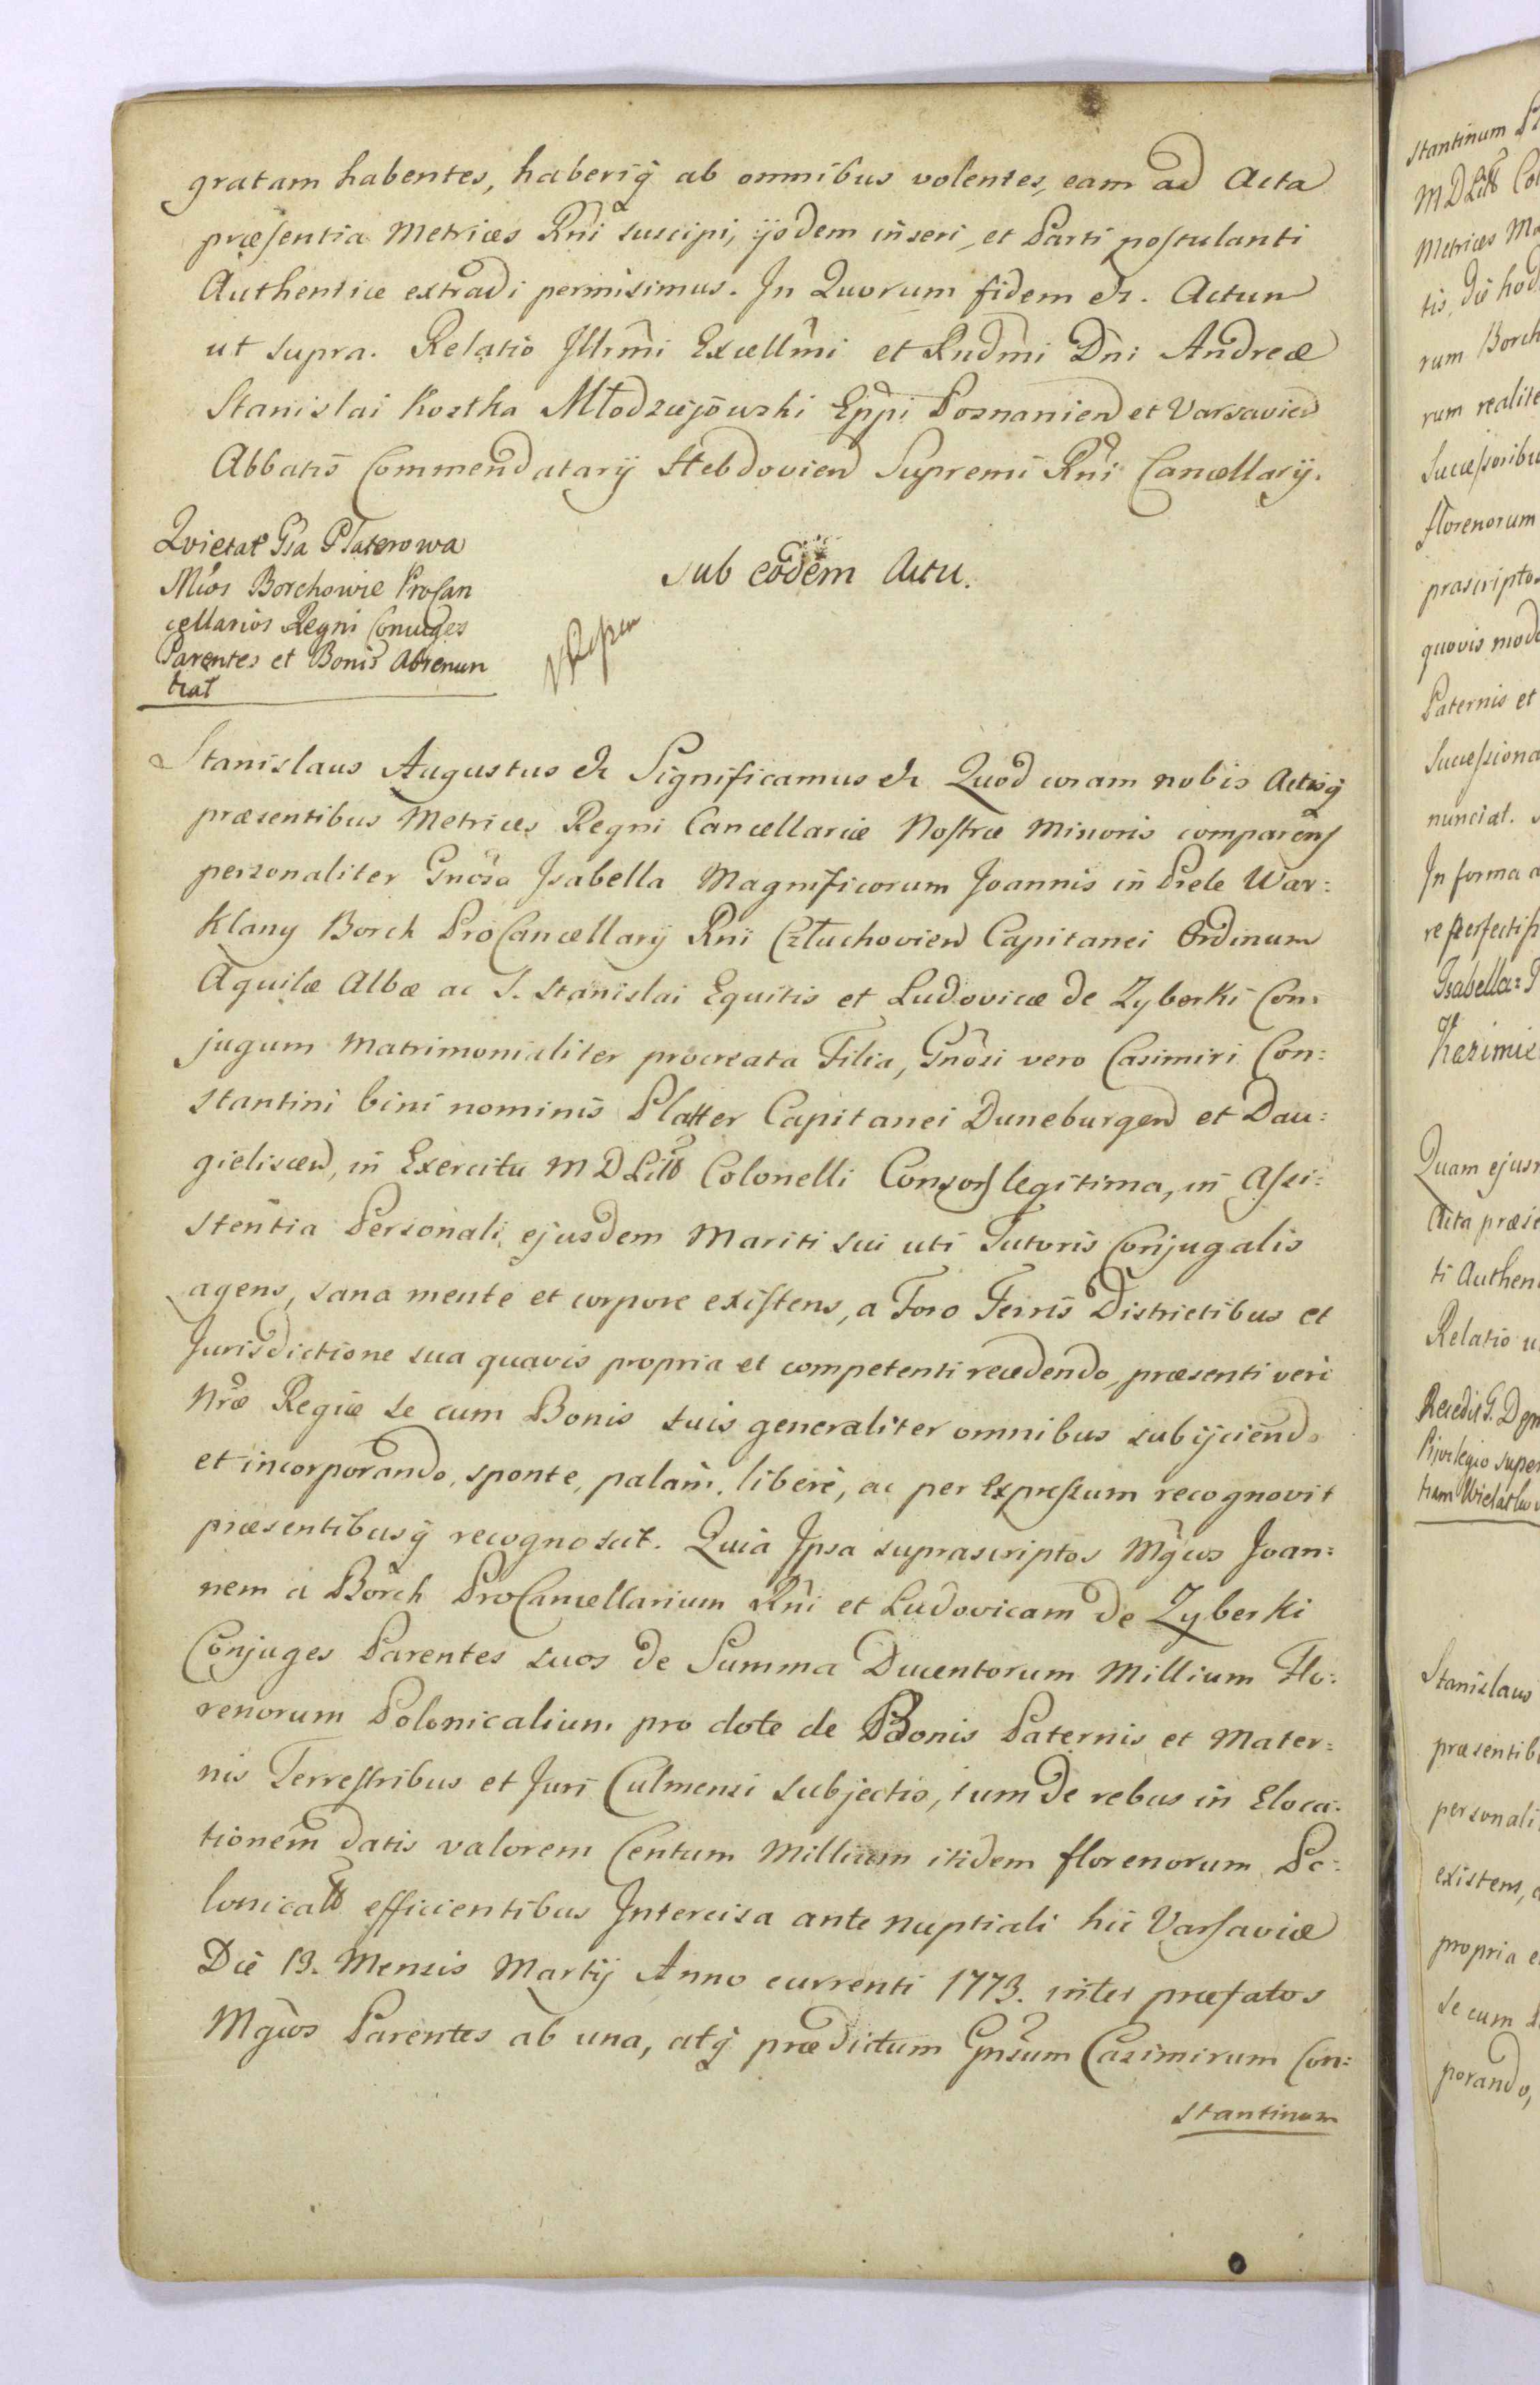 gratam habentes, haberiq̃ ab omnibus volentes, eam ad Acta
præsentia Metrices Rñi suscipi, ijsdem inseri, et Parti postulanti
Authentice extradi permisimus. In Quorum fidem etc. Actum
ut supra. Relatio Illrm̃i Excellm̃i et Rndm̃i Dñi Andreæ
Stanislai Kostka Młodziejowski Epp̃i Posnanien et Varsavien
Abbatis Commendatarij Hebdovien Supremi Rñi Cancellarij.
Quietat Gsa Platerowa
Mcos Borchowie ProCan
cellarios Regni Conjuges
Parentes et Bonis Abrenun
tiat
Sub eodem Actu.
Stanislaus Augustus etc Significamus etc Quod coram nobis Actisq̃
præsentibus Metrices Regni Cancellariæ Nostræ Minoris comparens
personaliter Gnõsa Isabella Magnificorum Joannis in Prele War=
klany Borch ProCancellarij Rñi Człuchovien Capitanei Ordinum
Aquilæ Albæ ac S. Stanislai Equitis et Ludovicæ de Zyberki Con=
jugum Matrimonialiter procreata Filia, Gnõsi vero Casimiri Con=
stantini bini nominis Platter Capitanei Duneburgen et Dau=
gieliscen, in Exercitu M D Litt Colonelli Consors legitima, in Assi=
stentia Personali ejusdem Mariti sui uti Tutoris Conjugalis
agens, sana mente et corpore existens, a Foro Terris Districtibus et
Jurisdictione sua quavis propria et competenti recedendo, præsenti veri
Nræ Regiæ se cum Bonis suis generaliter omnibus subijciendo
et incorporando, sponte, palam, libere, ac per expressum recognovit
præsentibusq̃ recognoscit. Quia Ipsa suprascriptos Mg̃cos Joan=
nem a Borch ProCancellarium Rñi et Ludovicam de Zyberki
Conjuges Parentes suos de Summa Ducentorum Millium Flo=
renorum Polonicalium pro dote de Bonis Paternis et Mater=
nis Terrestribus et Juri Culmensi subjectis, tum de rebus in Eloca=
tionem datis valorem Centum Millium itidem florenorum Po=
lonicalium efficientibus Intercisa ante nuptiali hic Varsaviæ
Die 13. Mensis Martij Anno currenti 1773. inter præfatos
Mg̃cos Parentes ab una, atq̃ prædictum Gnsum Casimirum Con=
stantinum
stantinum
M D Litt
Metrices
tis, die
rum Borch
rum
Successoribu
florenorum
præscriptos
quovis modo
Paternis et
Successiona
nunciat.
In forma
re
Isabella
Kazimie
Quam ejus
Acta præse
ti Authen
Relatio
Recedit G.
Privilegio super
Stanislaus
præsentib
personali
existens,
propria e
se cum
porando,